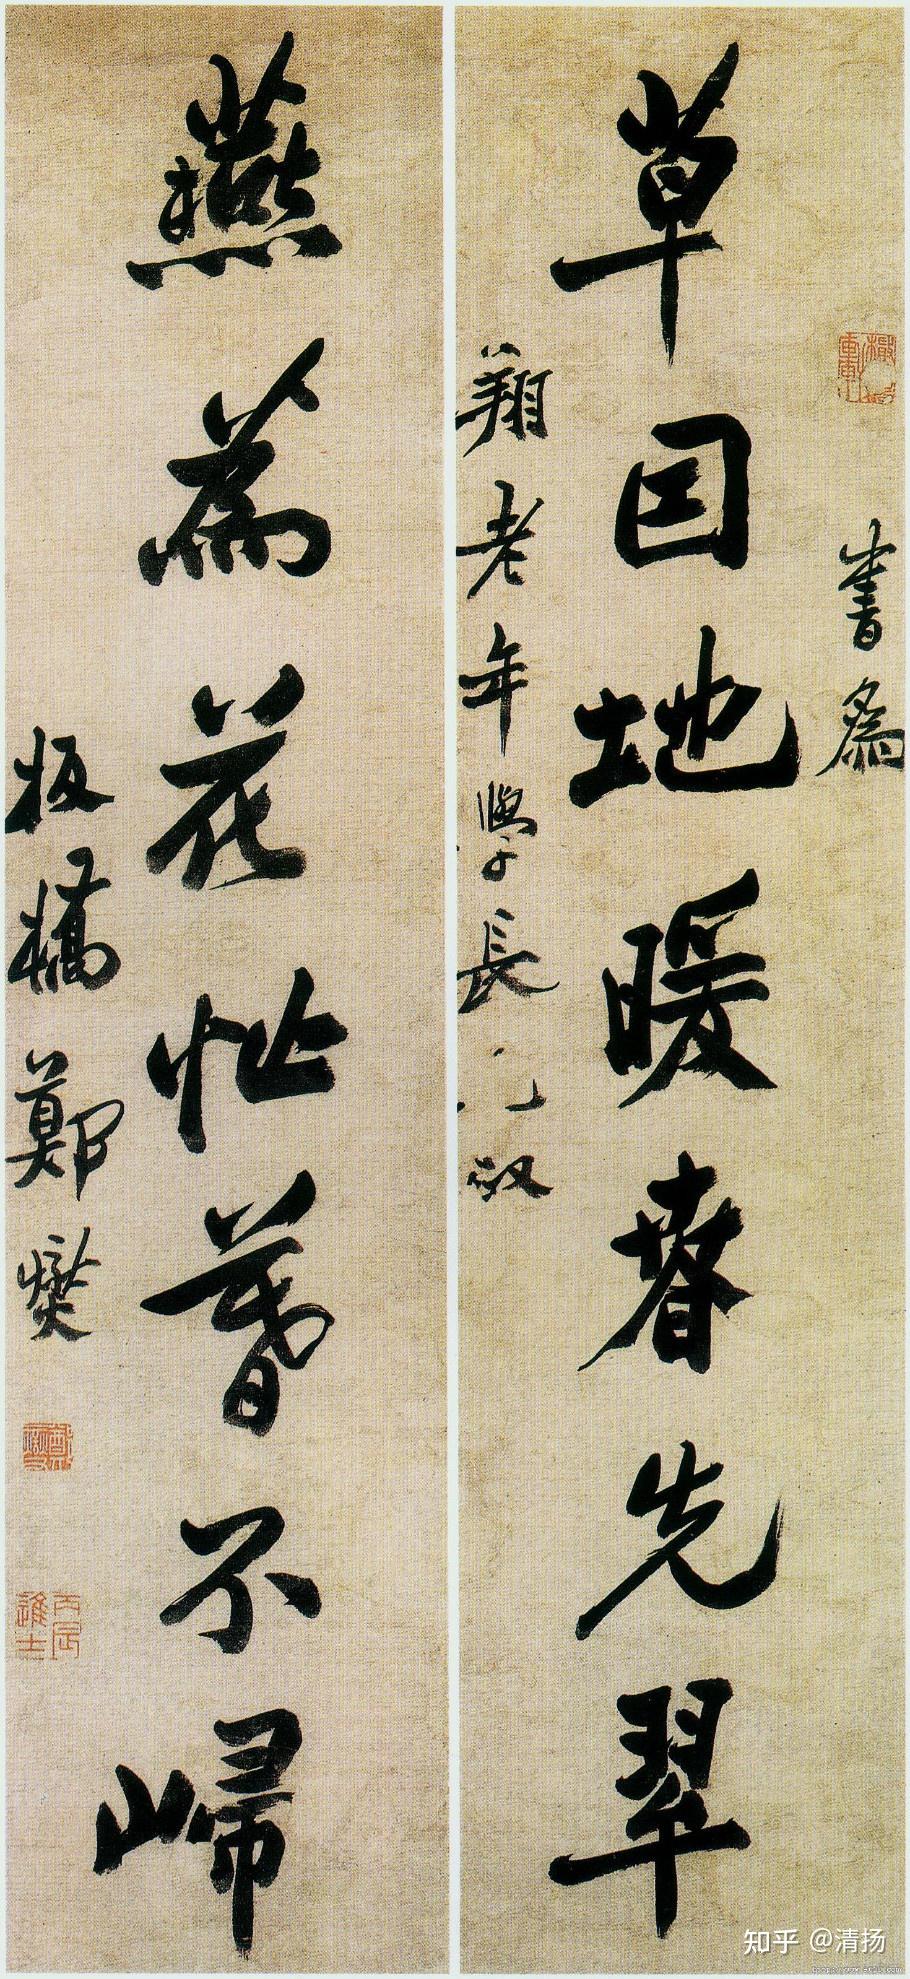 書為
草因地暖春先翠
翔老年學長兄政
燕為花忙暮不歸
板橋鄭燮
丙辰進士
知乎 @清扬